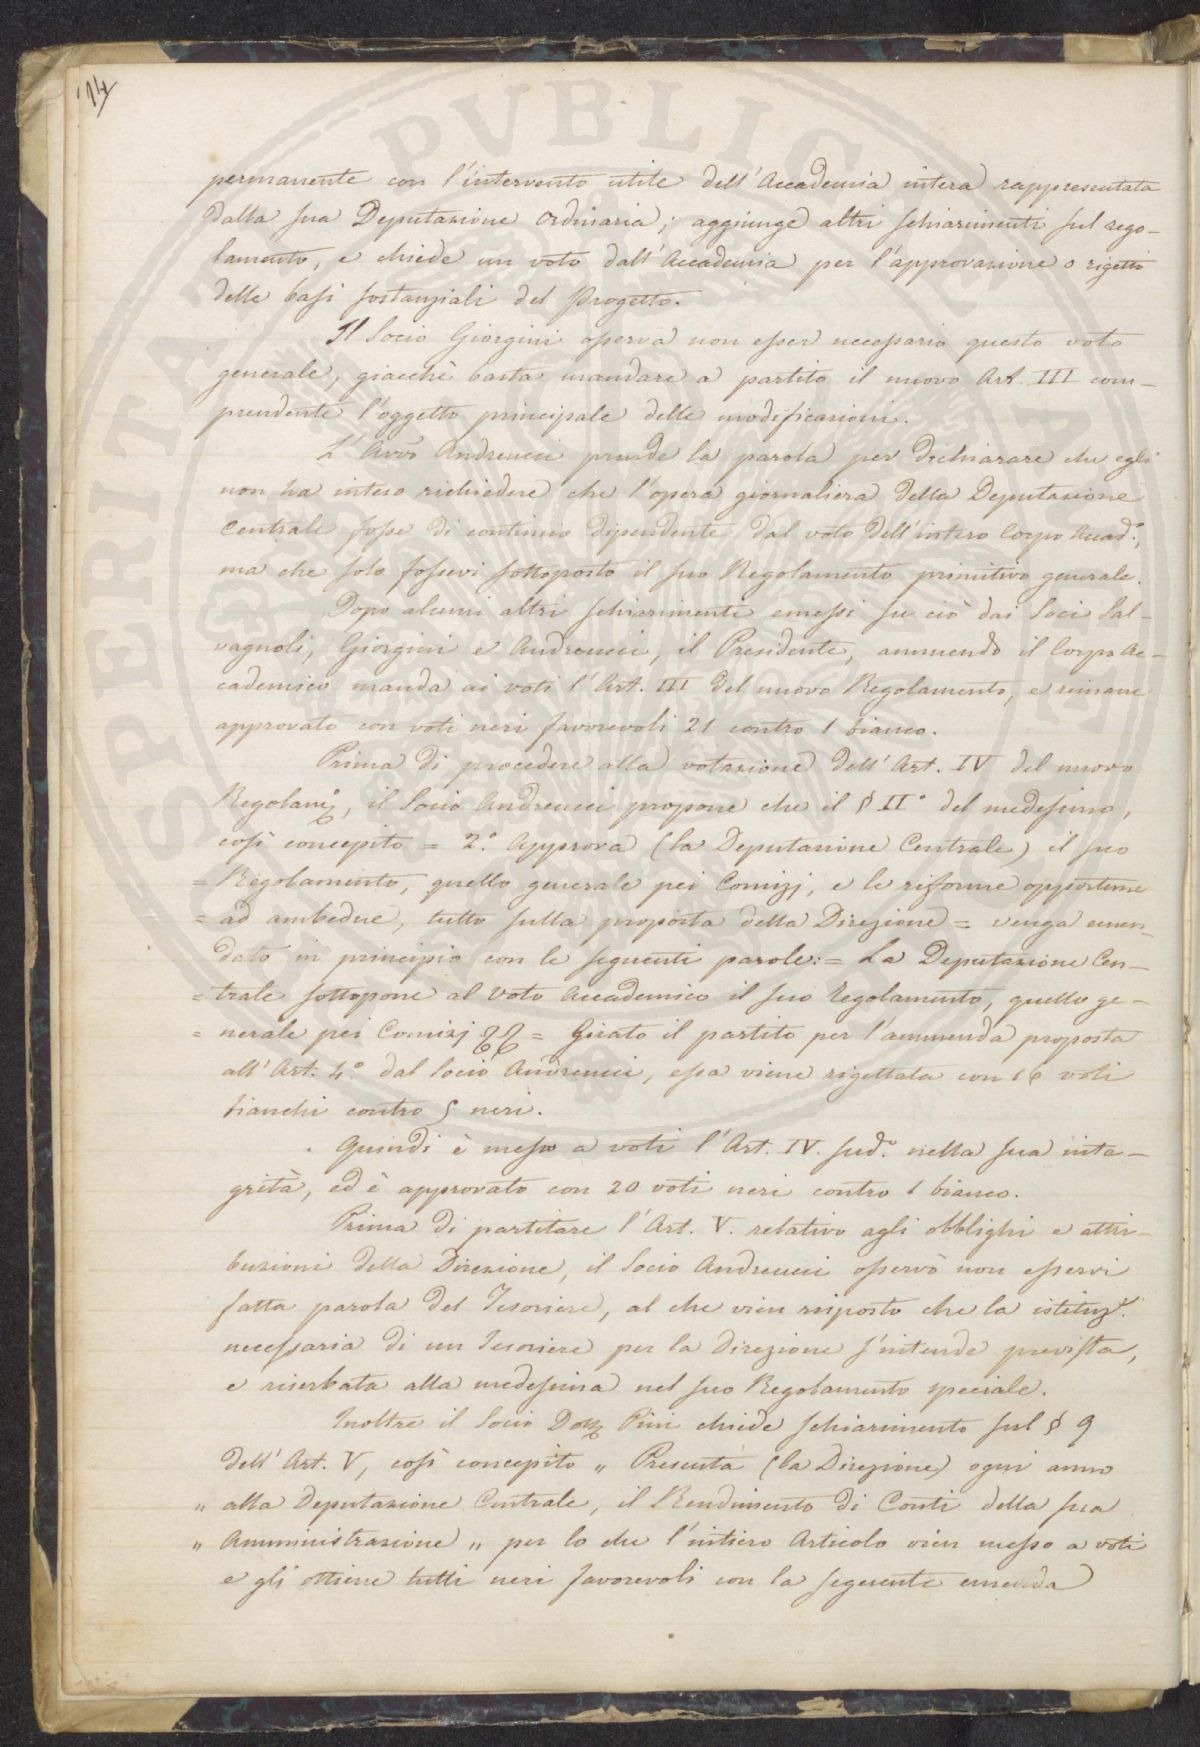 14
permanente con l'intervento utile dell'Accademia intera rappresentata
dalla sua Deputazione Ordinaria; aggiunge altri schiarimenti sul rego-
lamento, e chiede un voto dall'Accademia per l'approvazione o rigetto
delle basi sostanziali del Progetto.
Il Socio Giorgini osserva non esser necessario questo voto
generale, giacchè basta mandare a partito il nuovo Art. III com-
prendente l'oggetto principale delle modificazioni.
L'Avvo Andreucci prende la parola per dichiarare che egli
non ha inteso richiedere che l'opera giornaliera della Deputazione
Centrale fosse di continuo dipendente dal voto dell'intero Corpo Accad.º,
ma che solo fossevi sottoposto il suo Regolamento primitivo generale.
Dopo alcuni altri schiarimenti emessi su ciò dai Soci Sal-
vagnoli, Giorgini e Andreucci, il Presidente, annuendo il Corpo Ac-
cademico manda ai voti l'Art. III del nuovo Regolamento, e rimane
approvato con voti neri favorevoli 21 contro 1 bianco.
Prima di procedere alla votazione dell'Art. IV del nuovo
Regolam.º, il Socio Andreucci propone che il § II° del medesimo,
così concepito = 2.° Approva (la Deputazione Centrale) il suo
= Regolamento, quello generale pei Comizj, e le riforme opportune
= ad ambedue, tutto sulla proposta della Direzione = venga emen-
dato in principio con le seguenti parole: = La Deputazione Cen-
= trale sottopone al voto Accademico il suo Regolamento, quello ge-
= nerale pei Comizj = Girato il partito per l'ammenda proposta
all'Art. 4.° dal Socio Andreucci, essa viene rigettata con 16 voti
bianchi contro 5 neri.
Quindi è messo a voti l'Art. IV. sud.º nella sua inte-
grità, ed è approvato con 20 voti neri contro 1 bianco.
Prima di partitare l'Art. V. relativo agli obblighi e attri-
buzioni della Direzione, il Socio Andreucci osservò non esservi
fatta parola del Tesoriere, al che vien risposto che la istituz.e
necessaria di un Tesoriere per la Direzione s'intende prevista,
e riserbata alla medesima nel suo Regolamento speciale.
Inoltre il Socio Dott. Pini chiede schiarimento sul § 9
dell'Art. V, così concepito „ Presenta (la Direzione) ogni anno
„ alla Deputazione Centrale, il Rendimento di Conti della sua
„ Amministrazione „ per lo che l'intiero Articolo vien messo a voti
e gli ottiene tutti neri favorevoli con la seguente emenda
SPERITATE PVBLICAE